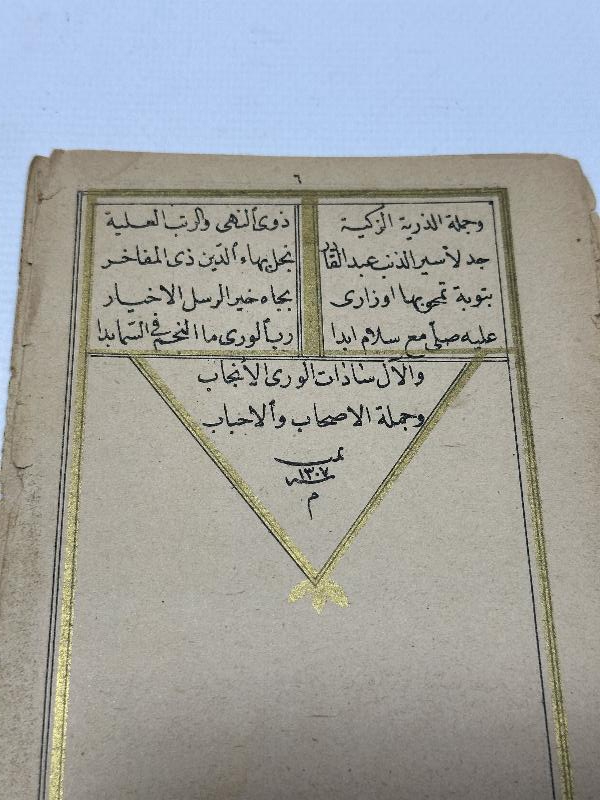 ٦
وجملة الذرية الزكية ذوى النهى والرتب العلية
جد لاسير الذنب عبد القادر نجل بهاء الدين ذى المفاخر
بتوبة تمحو بها اوزارى بجاه خير الرسل الاخيار
عليه صلى مع سلام ابدا رب الورى ما النجم فى السما بدا
والآل سادات الورى الانجاب
وجملة الاصحاب والاحباب
تمت
سنة ١٣٠٧
م